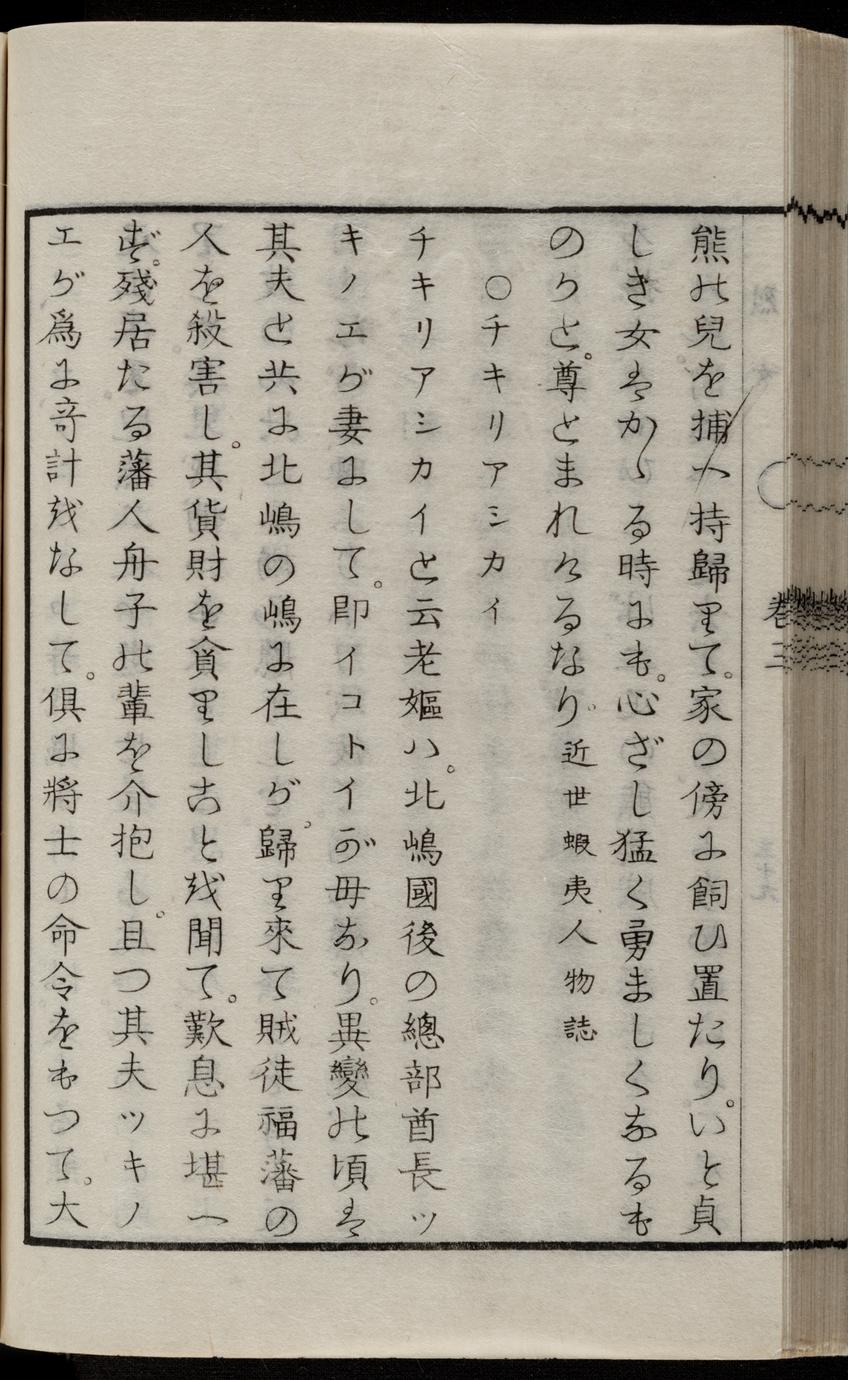 卷三
熊の兒を捕へ持歸りて。家の傍に飼ひ置たり。いと貞
しき女はかゝる時にも。心ざし猛く勇ましくなるも
のかと。尊とまれけるなり。近世蝦夷人物誌
○チキリアシカイ
チキリアシカイと云老嫗ハ。北嶋國後の總部酋長ツ
キノエが妻にして。即イコトイが母なり。異變の頃は
其夫と共に北嶋の嶋に在しが。歸り來て賊徒福藩の
人を殺害し。其貨財を貪りしことを聞て。歎息に堪へ
ず。殘居たる藩人舟子の輩を介抱し。且つ其夫ツキノ
エが爲に竒計をなして。倶に將士の命令をもつて。大